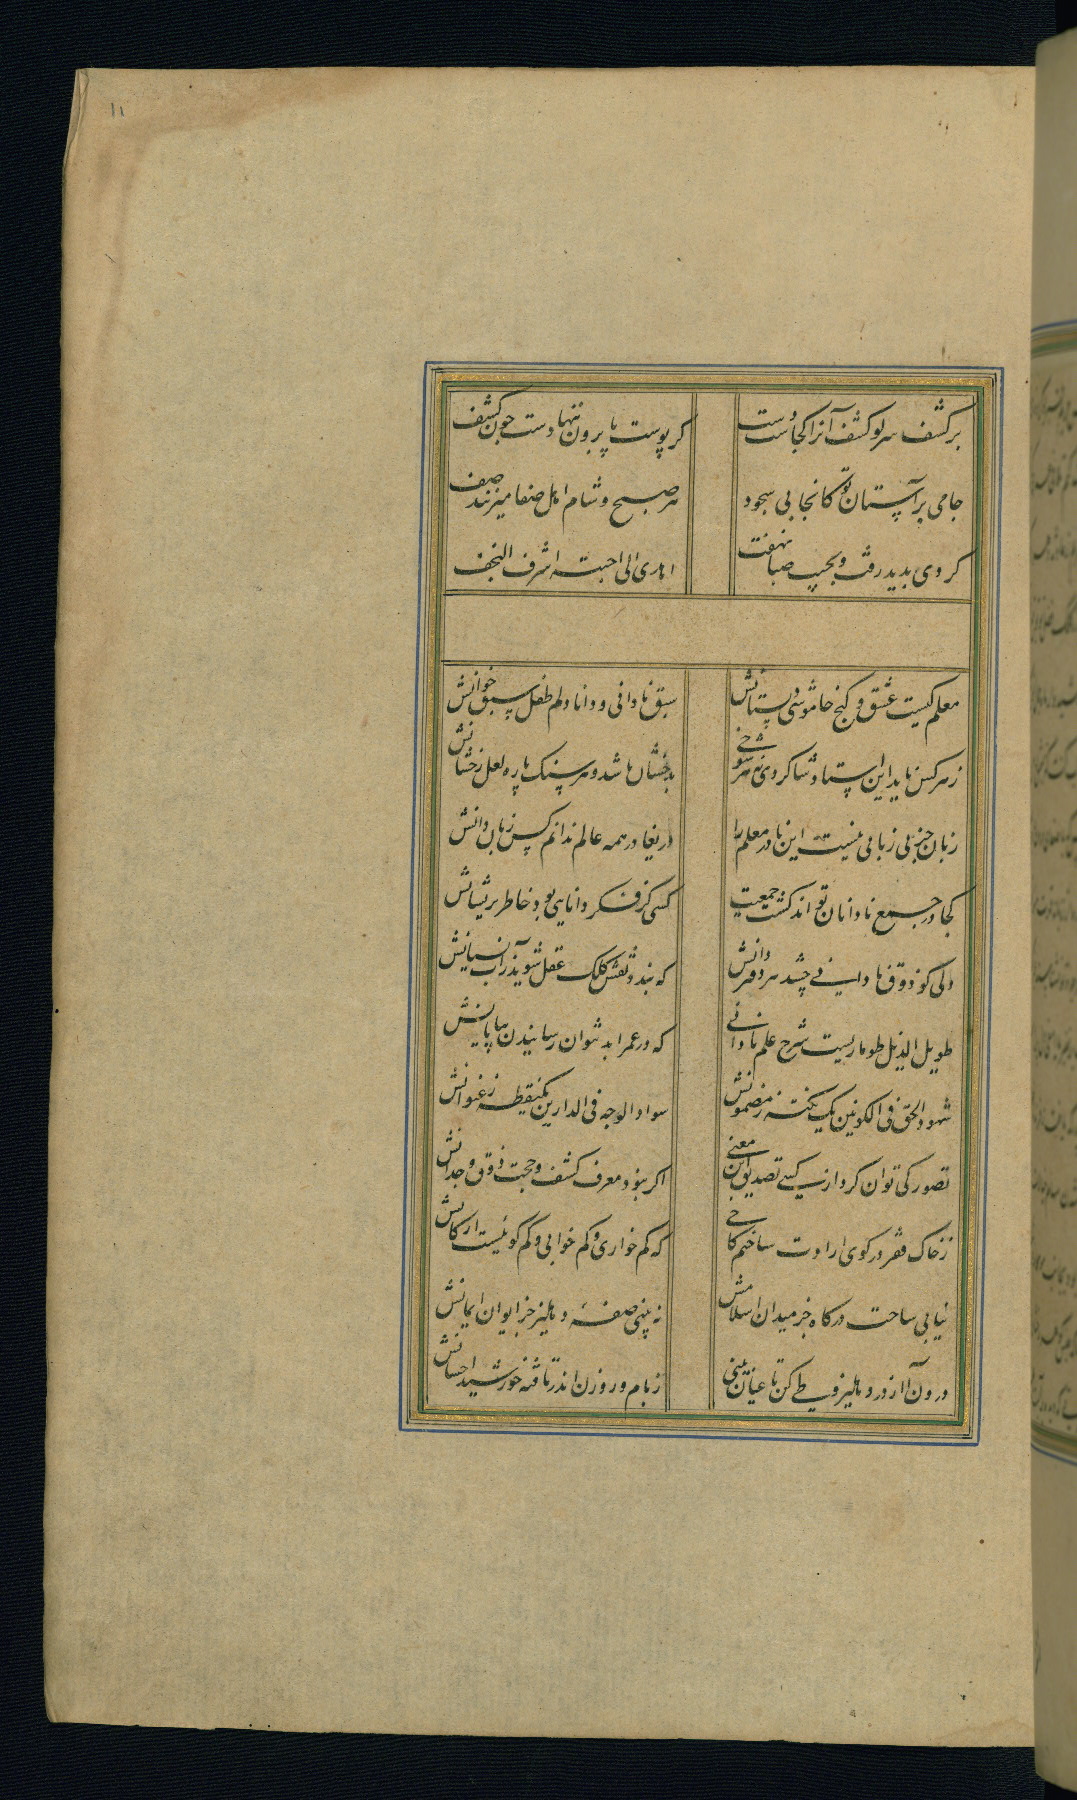 ۱۱
بر کشف سر لو کشف آنرا کجاست دست
کز پوست پا برون ننهادست چون کشف
جامی بر آستان تو کانجا پی سجود
هر صبح و شام اهل صفا میزنند صف
کردی بدید رفت و بجیب صبا نهفت
اهدی الی احبته اشرف النجف
معلم کیست عشق و کنج خاموشی دبستانش
سبق نادانی و دانا دلم طفل سبق خوانش
ز هر کس ناید این استاد شاکردی نه هر شوخی
بدخشان باشد و هر سنک پاره لعل رخشانش
زبان جز بی زبانی نیست این نادر معلم را
دریغا در همه عالم ندانم کس زبان دانش
کجا در جمع نادانان تواند کشت جمعیت
کسی کز فکر دانایی بود خاطر پریشانش
دلی کو ذوق نادانی چشد هر دفتر دانش
که بندد نقش کلک عقل شوید زآب نسیانش
طویل الذیل طوماریست شرح علم نادانی
که در عمر ابد نتوان رسانیدن بپایانش
شهود الحق فی الکونین یک نکته ز مضمونش
سواد الوجه فی الدارین یکنقطه ز عنوانش
تصور کی توان کرد از کسی تصدیق این معنی
اکر نبود معرف کشف و حجت ذوق و وجدانش
ز خاک فقر در کوی ارادت ساختم کاخی
که کم خواری و کم خوابی و کم کوئیست ارکانش
نیابی ساحت درکاه جز میدان اسلامش
نه بینی صفه و دهلیز جز ایوان ایمانش
درون آ از در و دهلیز وی طی کن تا عیان بینی
ز بام و روزن اندر تافته خورشید احسانش